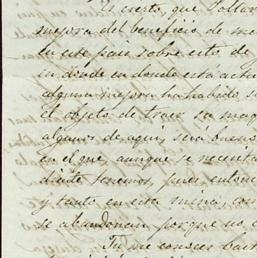 Es cierto, que Pollar
mejora del beneficio de me
en este pais, sobre esto de
in donde en donde esta actu
alguna mejora ha habido s
el objeto de traer su maq
algunos de aqui, será buen
en el que, aunque se necesita
diste tenemos, pues, entom
y tanto en esta mina, com
se abandonan porque no c
Tu me conoces bast